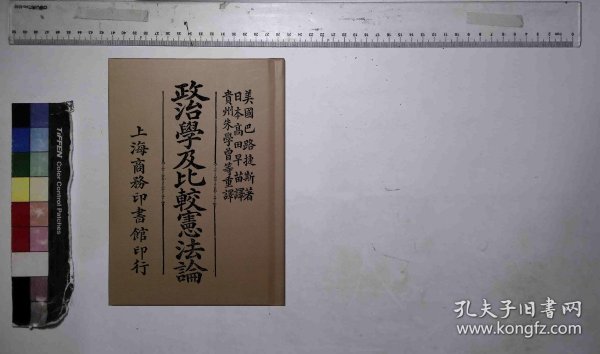 美國巴路捷斯著
日本高田早苗譯
貴州朱學曾等重譯
政治學及比較憲法論
上海商務印書館印行
TIFFEN Color Control Patches
孔夫子旧书网
www.kongfz.com